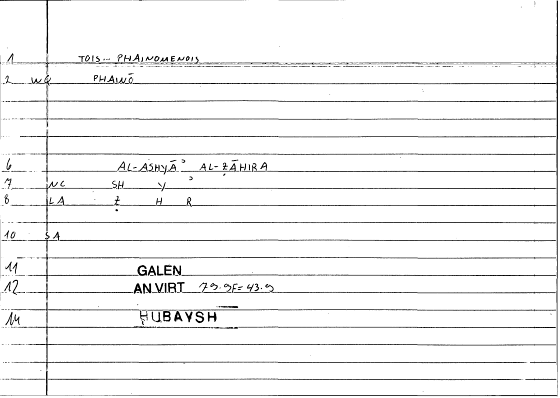 1 TOIS... PHAINOMENOIS
2 WG PHAINŌ
6 AL-ASHYĀʾ AL-ẒĀHIRA
7 NC SH Y ʾ
8 LA Ẓ H R
10 SA
11 GALEN
12 AN VIRT 79.9F=43.9
14 ḤUBAYSH